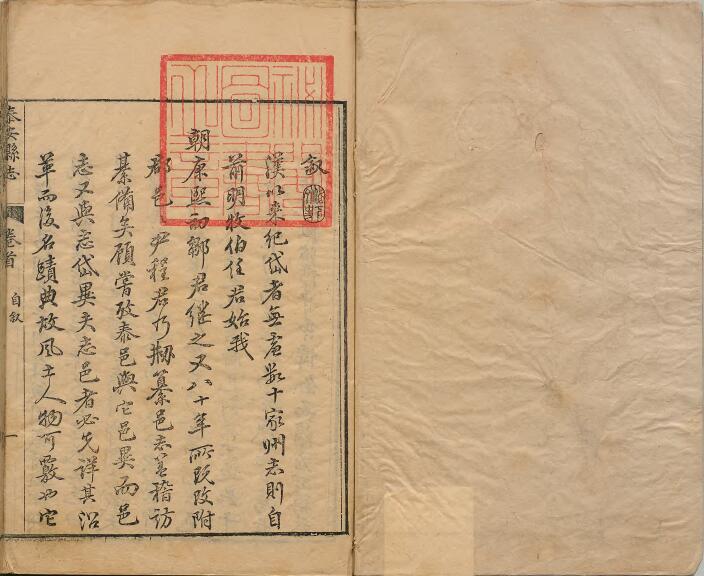 叙
漢以來紀岱者無慮數十家州志則自
前明牧伯任君始我
朝康熙初鄒君繼之又八十年所既改附
郡邑 尹程君乃刱纂邑志蓋稽訪
綦備矣顧嘗攷泰邑與它邑異而邑
志又與志岱異夫志邑者必先詳其沿
革而後名蹟典故風土人物可覈也它
泰安縣志 卷首 自叙 一